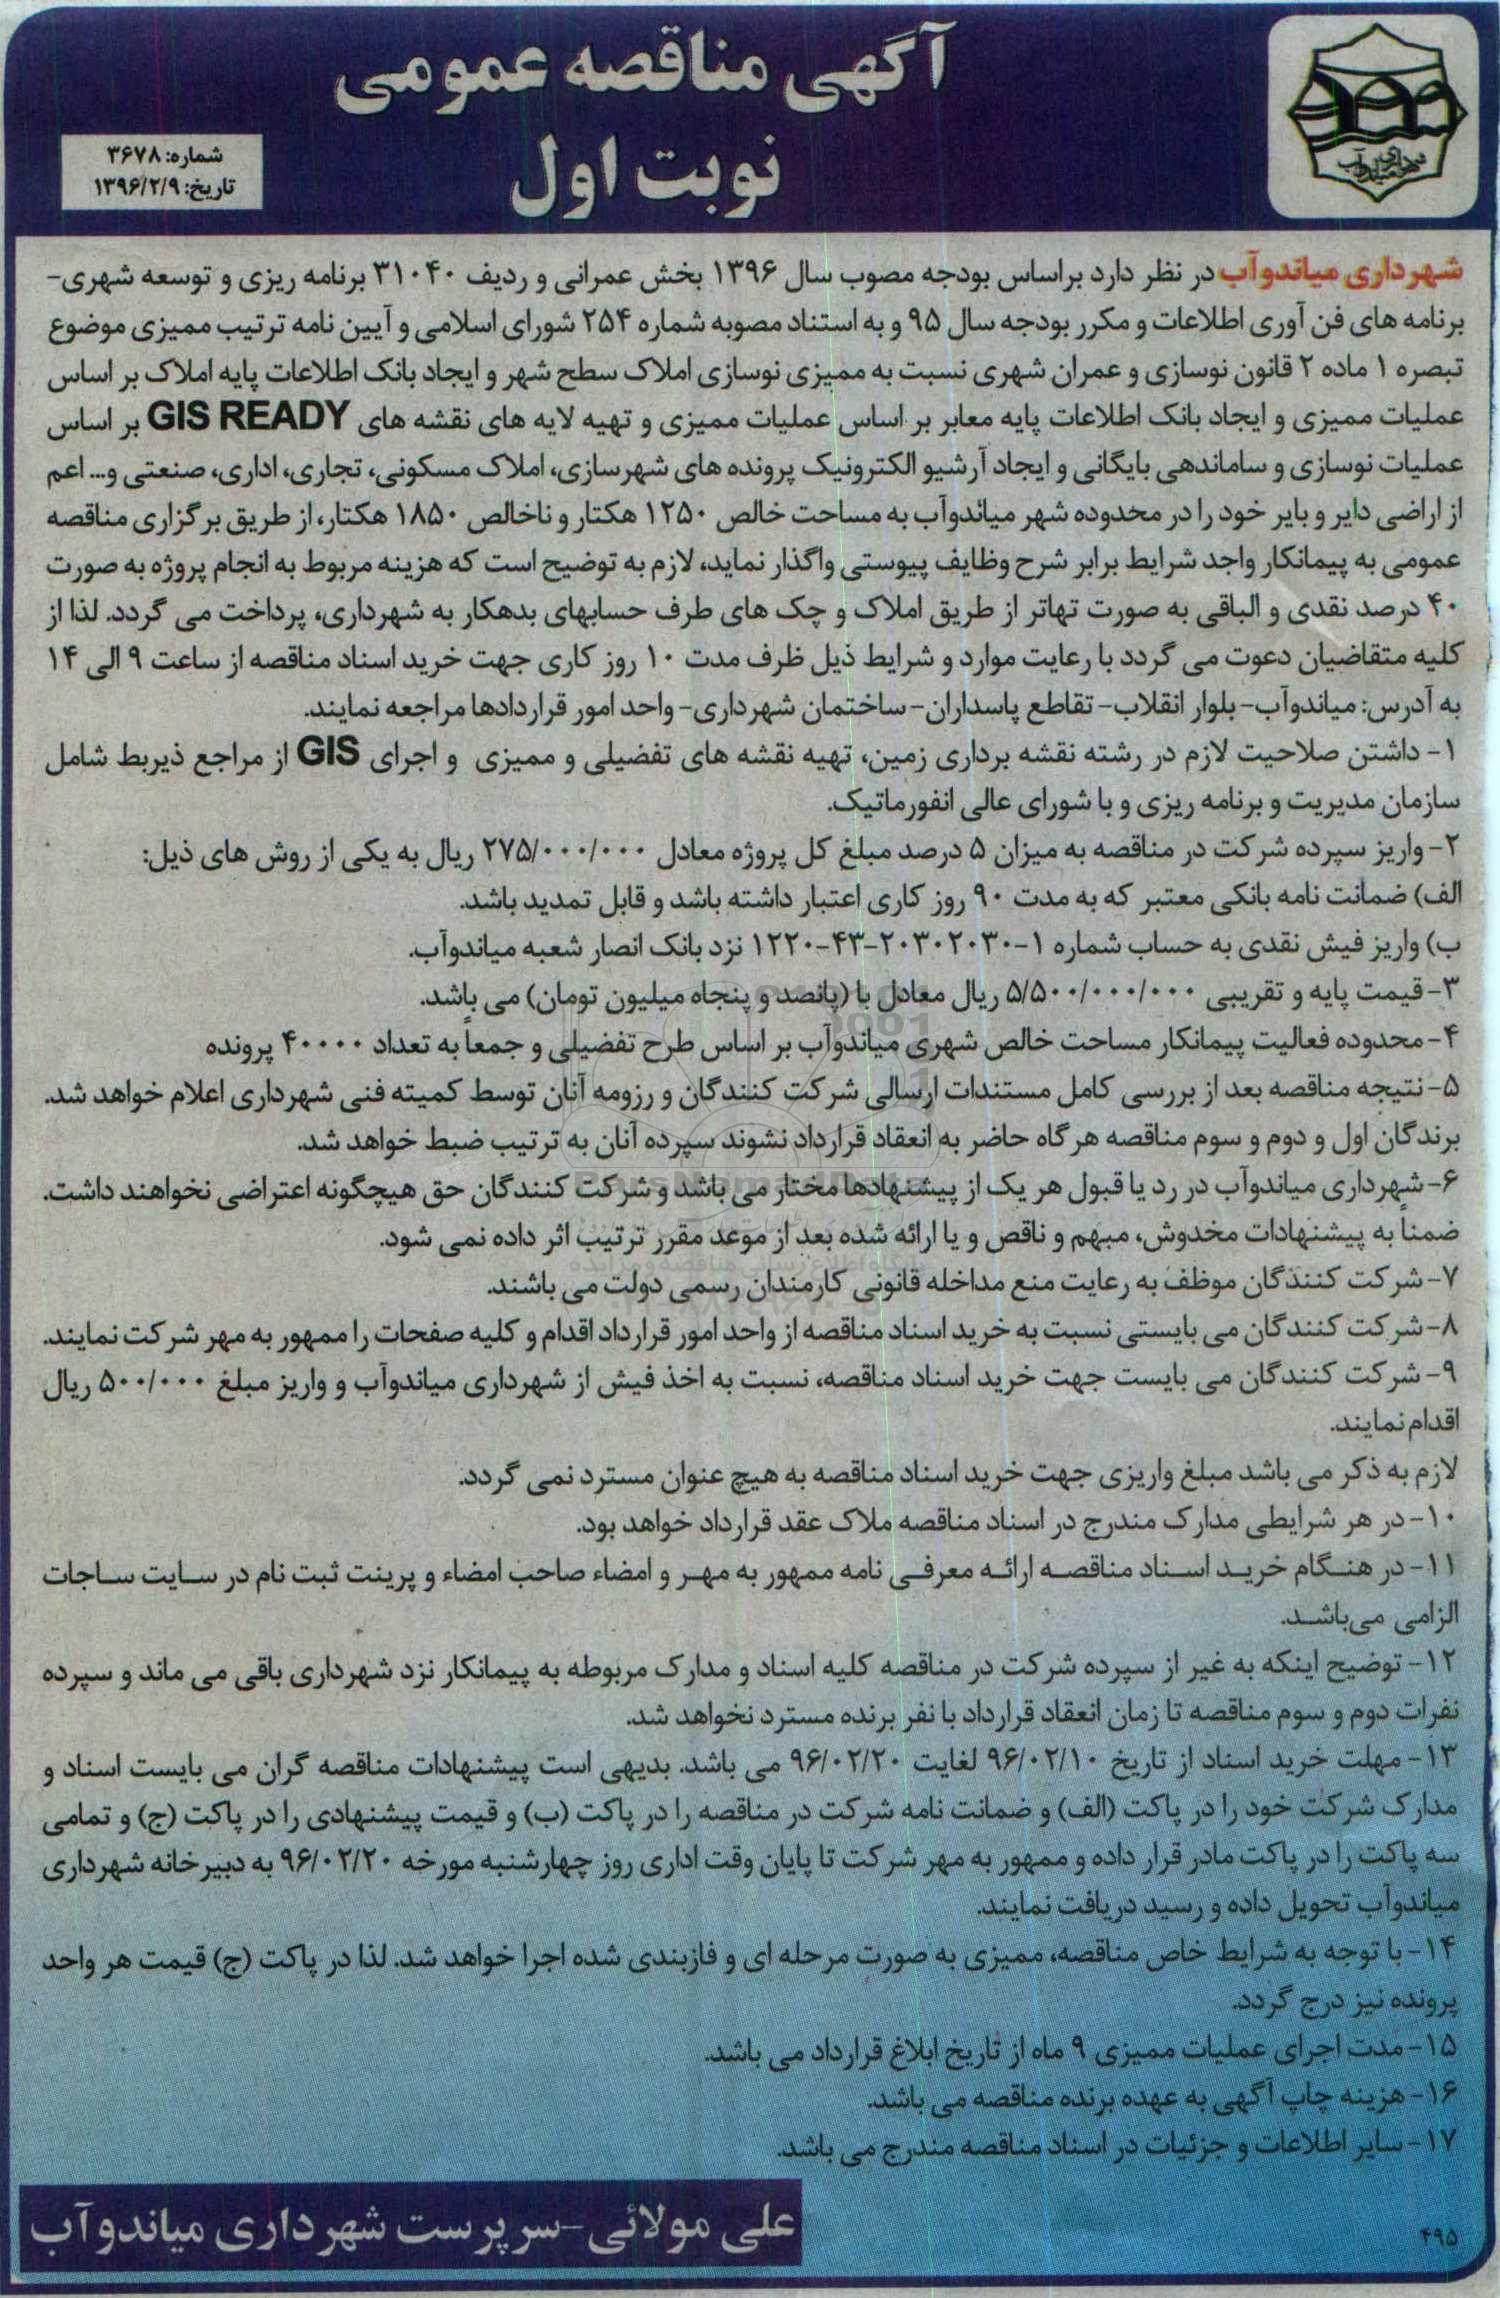 آگهی مناقصه عمومی
نوبت اول
شماره: ۳۶۷۸
تاریخ: ۱۳۹۶/۲/۹
شهرداری میاندوآب
شهرداری میاندوآب در نظر دارد براساس بودجه مصوب سال ۱۳۹۶ بخش عمرانی و ردیف ۳۱۰۴۰ برنامه ریزی و توسعه شهری-
برنامه های فن آوری اطلاعات و مکرر بودجه سال ۹۵ و به استناد مصوبه شماره ۲۵۴ شورای اسلامی و آیین نامه ترتیب ممیزی موضوع
تبصره ۱ ماده ۲ قانون نوسازی و عمران شهری نسبت به ممیزی نوسازی املاک سطح شهر و ایجاد بانک اطلاعات پایه املاک بر اساس
عملیات ممیزی و ایجاد بانک اطلاعات پایه معابر بر اساس عملیات ممیزی و تهیه لایه های نقشه های GIS READY بر اساس
عملیات نوسازی و ساماندهی بایگانی و ایجاد آرشیو الکترونیک پرونده های شهرسازی، املاک مسکونی، تجاری، اداری، صنعتی و... اعم
از اراضی دایر و بایر خود را در محدوده شهر میاندوآب به مساحت خالص ۱۲۵۰ هکتار و ناخالص ۱۸۵۰ هکتار، از طریق برگزاری مناقصه
عمومی به پیمانکار واجد شرایط برابر شرح وظایف پیوستی واگذار نماید، لازم به توضیح است که هزینه مربوط به انجام پروژه به صورت
۴۰ درصد نقدی و الباقی به صورت تهاتر از طریق املاک و چک های طرف حسابهای بدهکار به شهرداری، پرداخت می گردد. لذا از
کلیه متقاضیان دعوت می گردد با رعایت موارد و شرایط ذیل ظرف مدت ۱۰ روز کاری جهت خرید اسناد مناقصه از ساعت ۹ الی ۱۴
به آدرس: میاندوآب- بلوار انقلاب- تقاطع پاسداران- ساختمان شهرداری- واحد امور قراردادها مراجعه نمایند.
۱- داشتن صلاحیت لازم در رشته نقشه برداری زمین، تهیه نقشه های تفضیلی و ممیزی و اجرای GIS از مراجع ذیربط شامل
سازمان مدیریت و برنامه ریزی و با شورای عالی انفورماتیک.
۲- واریز سپرده شرکت در مناقصه به میزان ۵ درصد مبلغ کل پروژه معادل ۲۷۵/۰۰۰/۰۰۰ ریال به یکی از روش های ذیل:
الف) ضمانت نامه بانکی معتبر که به مدت ۹۰ روز کاری اعتبار داشته باشد و قابل تمدید باشد.
ب) واریز فیش نقدی به حساب شماره ۱-۲۰۳۰۲۰۳۰-۴۳-۱۲۲۰ نزد بانک انصار شعبه میاندوآب.
۳- قیمت پایه و تقریبی ۵/۵۰۰/۰۰۰/۰۰۰ ریال معادل با (پانصد و پنجاه میلیون تومان) می باشد.
۴- محدوده فعالیت پیمانکار مساحت خالص شهری میاندوآب بر اساس طرح تفضیلی و جمعاً به تعداد ۴۰۰۰۰ پرونده
۵- نتیجه مناقصه بعد از بررسی کامل مستندات ارسالی شرکت کنندگان و رزومه آنان توسط کمیته فنی شهرداری اعلام خواهد شد.
برندگان اول و دوم و سوم مناقصه هرگاه حاضر به انعقاد قرارداد نشوند سپرده آنان به ترتیب ضبط خواهد شد.
۶- شهرداری میاندوآب در رد یا قبول هر یک از پیشنهادها مختار می باشد و شرکت کنندگان حق هیچگونه اعتراضی نخواهند داشت.
ضمناً به پیشنهادات مخدوش، مبهم و ناقص و یا ارائه شده بعد از موعد مقرر ترتیب اثر داده نمی شود.
۷- شرکت کنندگان موظف به رعایت منع مداخله قانونی کارمندان رسمی دولت می باشند.
۸- شرکت کنندگان می بایستی نسبت به خرید اسناد مناقصه از واحد امور قرارداد اقدام و کلیه صفحات را ممهور به مهر شرکت نمایند.
۹- شرکت کنندگان می بایست جهت خرید اسناد مناقصه، نسبت به اخذ فیش از شهرداری میاندوآب و واریز مبلغ ۵۰۰/۰۰۰ ریال
اقدام نمایند.
لازم به ذکر می باشد مبلغ واریزی جهت خرید اسناد مناقصه به هیچ عنوان مسترد نمی گردد.
۱۰- در هر شرایطی مدارک مندرج در اسناد مناقصه ملاک عقد قرارداد خواهد بود.
۱۱- در هنگام خرید اسناد مناقصه ارائه معرفی نامه ممهور به مهر و امضاء صاحب امضاء و پرینت ثبت نام در سایت ساجات
الزامی می‌باشد.
۱۲- توضیح اینکه به غیر از سپرده شرکت در مناقصه کلیه اسناد و مدارک مربوطه به پیمانکار نزد شهرداری باقی می ماند و سپرده
نفرات دوم و سوم مناقصه تا زمان انعقاد قرارداد با نفر برنده مسترد نخواهد شد.
۱۳- مهلت خرید اسناد از تاریخ ۹۶/۰۲/۱۰ لغایت ۹۶/۰۲/۲۰ می باشد. بدیهی است پیشنهادات مناقصه گران می بایست اسناد و
مدارک شرکت خود را در پاکت (الف) و ضمانت نامه شرکت در مناقصه را در پاکت (ب) و قیمت پیشنهادی را در پاکت (ج) و تمامی
سه پاکت را در پاکت مادر قرار داده و ممهور به مهر شرکت تا پایان وقت اداری روز چهارشنبه مورخه ۹۶/۰۲/۲۰ به دبیرخانه شهرداری
میاندوآب تحویل داده و رسید دریافت نمایند.
۱۴- با توجه به شرایط خاص مناقصه، ممیزی به صورت مرحله ای و فازبندی شده اجرا خواهد شد. لذا در پاکت (ج) قیمت هر واحد
پرونده نیز درج گردد.
۱۵- مدت اجرای عملیات ممیزی ۹ ماه از تاریخ ابلاغ قرارداد می باشد.
۱۶- هزینه چاپ آگهی به عهده برنده مناقصه می باشد.
۱۷- سایر اطلاعات و جزئیات در اسناد مناقصه مندرج می باشد.
علی مولائی-سرپرست شهرداری میاندوآب
۴۹۵